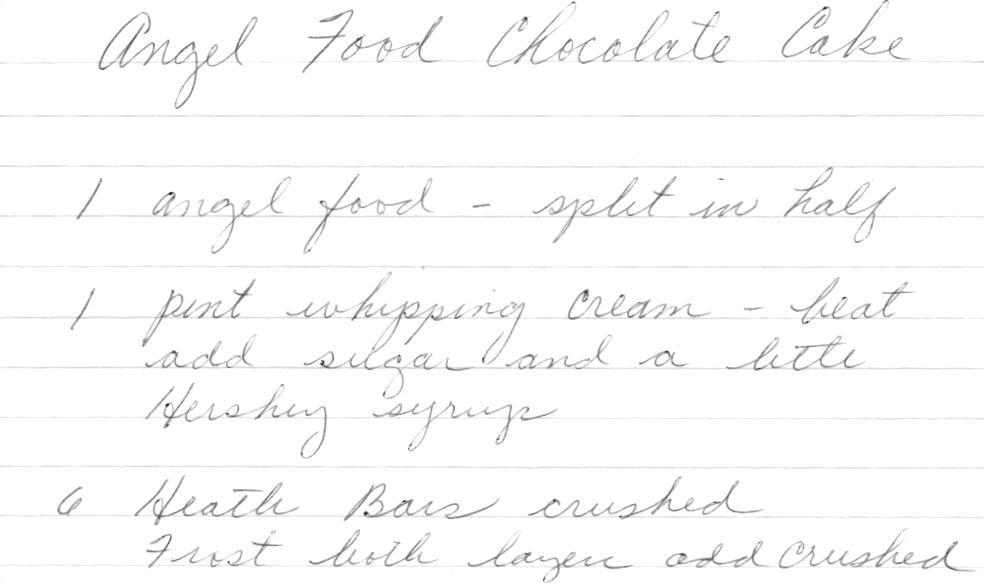 Angel Food Chocolate Cake
1 angel food - split in half
1 pint whipping cream - beat
add sugar and a little
Hershey syrup
6 Heath Bars crushed
Frost both layers add crushed